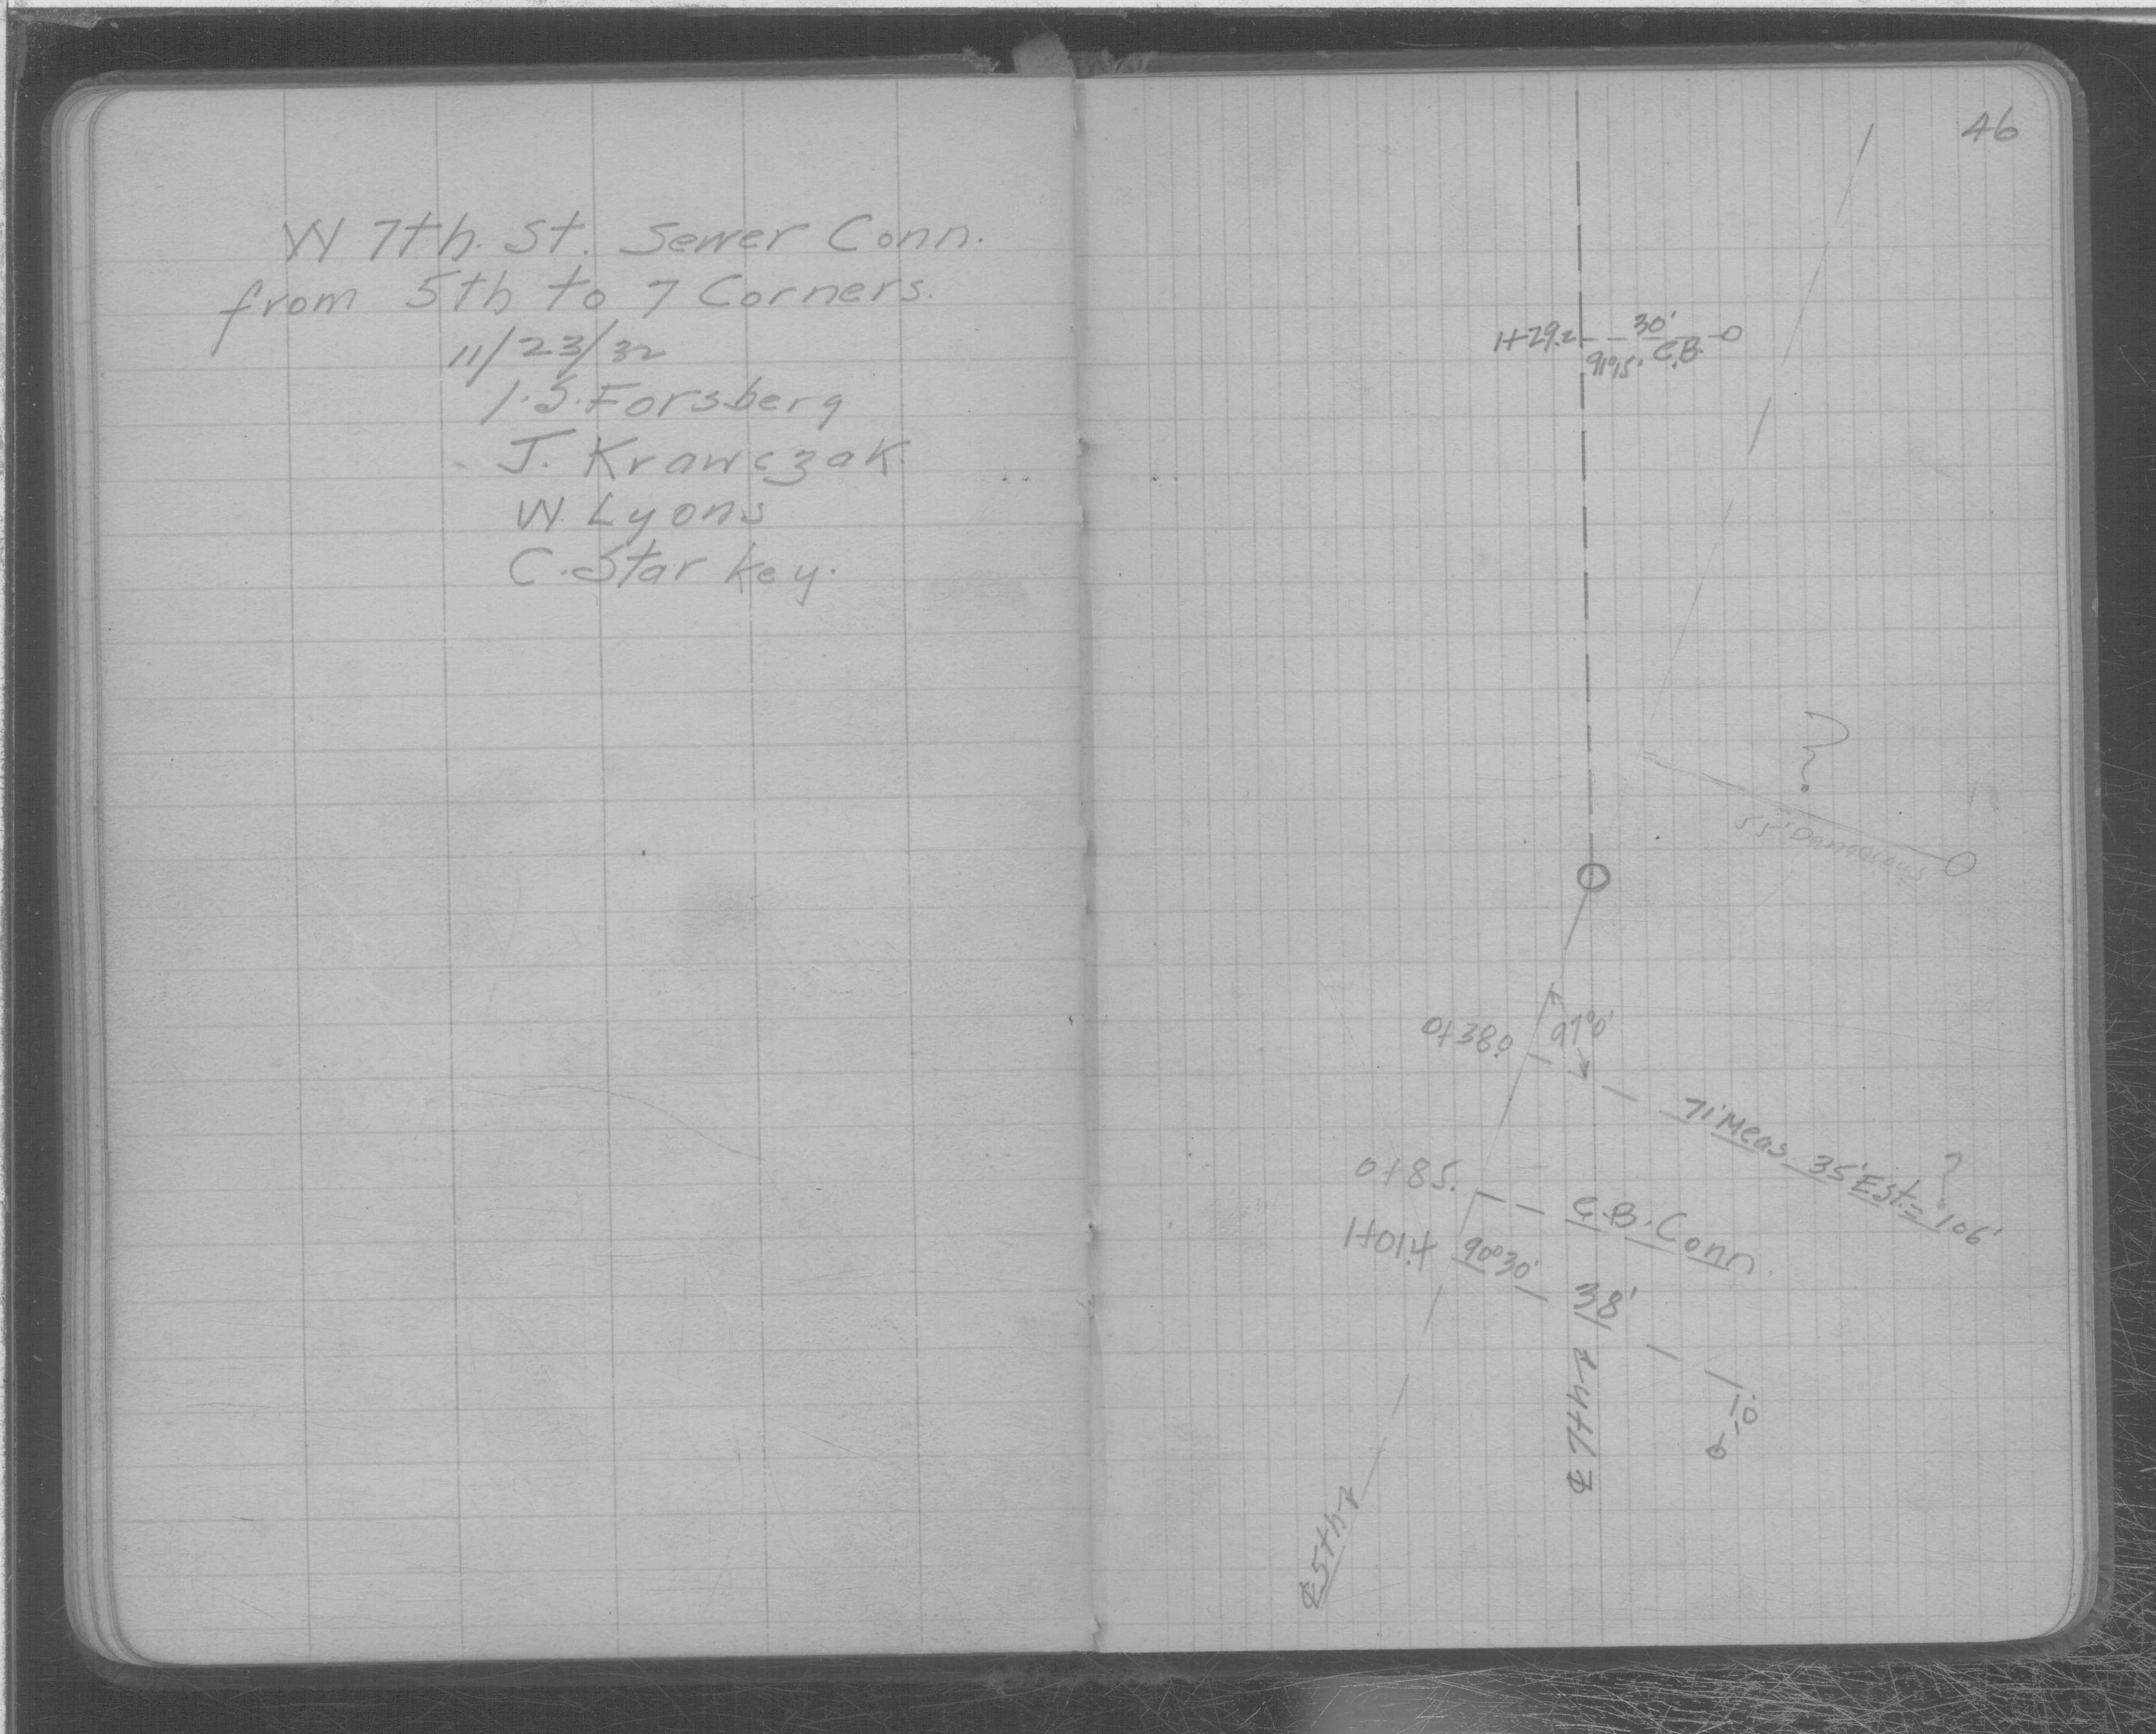 W 7th. St. Sewer Conn.
from 5th to 7 Corners.
11/23/32
I.S. Forsberg
J. Krawczak.
W Lyons
C. Starkey.
46
1+29.2 30'
91°15' C.B.
?
55'
0+38.0 97°0'
71' Meas. 35' Est. = 106'
?
0+85. C.B. Conn.
1+01.4 90°30' 38'
℄ 7th
℄ 5th